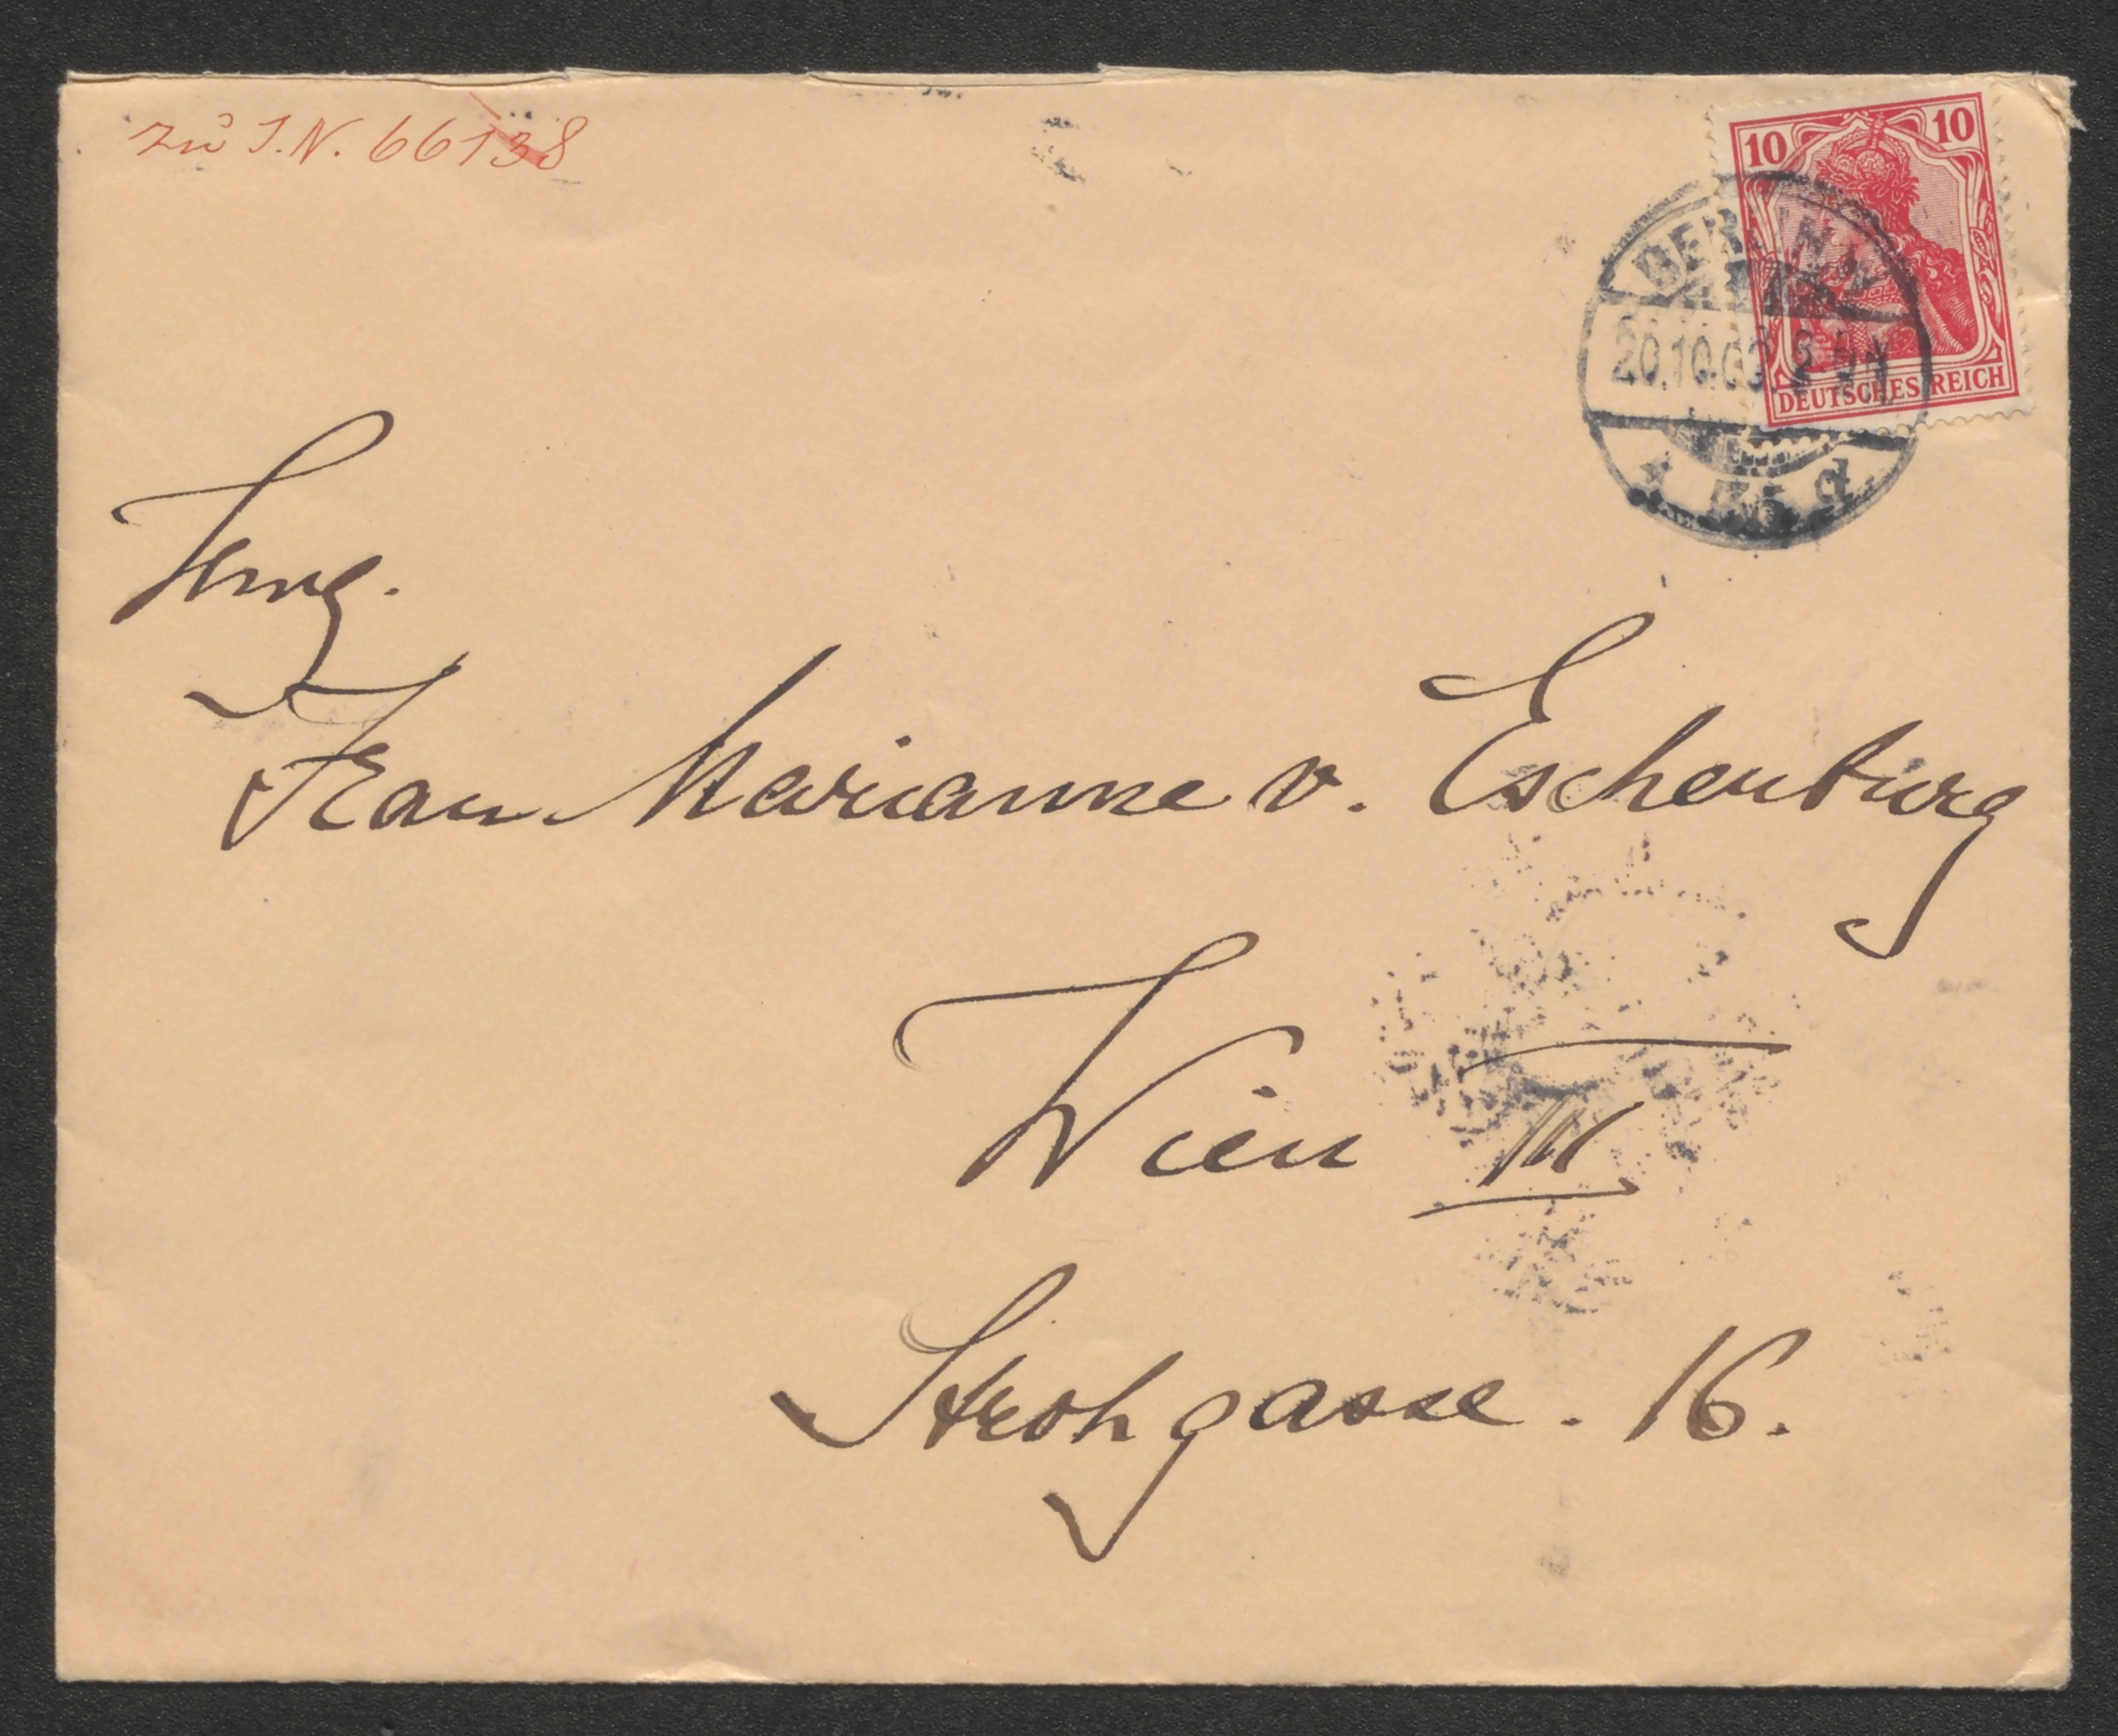 zu I.N. 66138
10 10
DEUTSCHES REICH
BERLIN W
20.10.03
* 35 d.
Frau Marianne v. Eschenburg
Wien III
Strohgasse. 16.